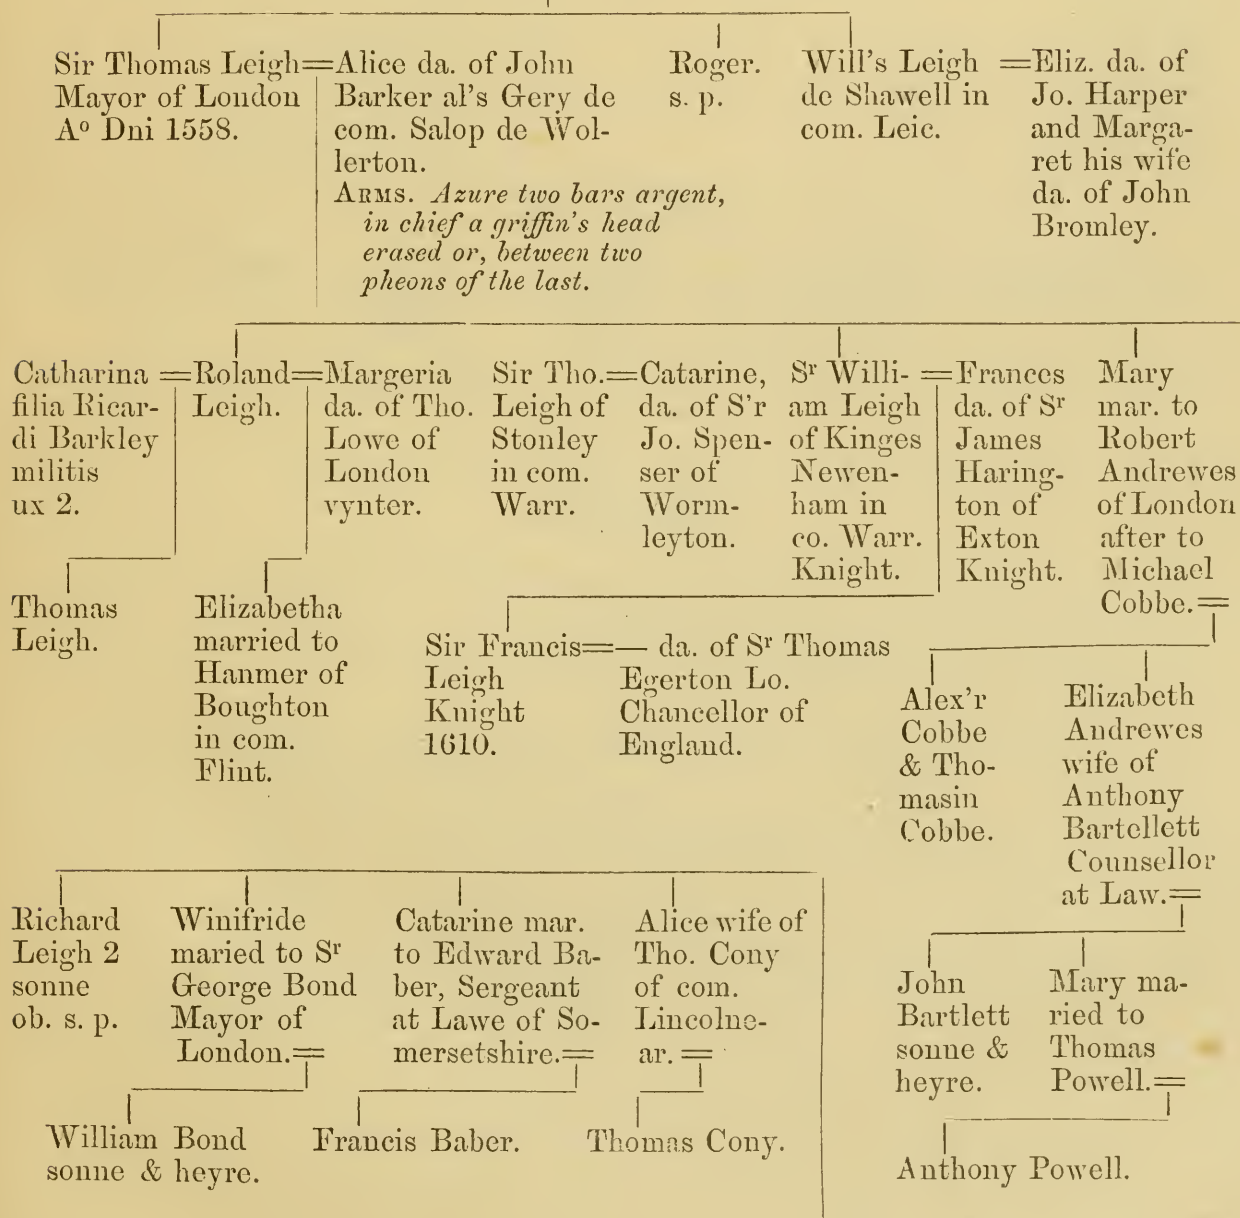 Sir Thomas Leigh=Alice da. of John
Mayor of London
Aº Dni 1558.
Barker al's Gery de
com. Salop de Wol-
lerton.
ARMS. Azure two bars argent,
in chief a griffin's head
erased or, between two
pheons of the last.
Roger.
s. p.
Will's Leigh =Eliz. da. of
de Shawell in
com. Leic.
Jo. Harper
and Marga-
ret his wife
da. of John
Bromley.
Catharina =Roland=Margeria
filia Ricar-
di Barkley
militis
ux 2.
Leigh.
da. of Tho.
Lowe of
London
vynter.
Sir Tho.=Catarine,
Leigh of
Stonley
in com.
Warr.
da. of S'r
Jo. Spen-
ser of
Worm-
leyton.
Sr Willi- =Frances
am Leigh
of Kinges
Newen-
ham in
co. Warr.
Knight.
da. of Sr
James
Haring-
ton of
Exton
Knight.
Mary
mar. to
Robert
Andrewes
of London
after to
Michael
Cobbe.=
Thomas
Leigh.
Elizabetha
married to
Hanmer of
Boughton
in com.
Flint.
Sir Francis=— da. of Sr Thomas
Leigh
Knight
1610.
Egerton Lo.
Chancellor of
England.
Alex'r
Cobbe
& Tho-
masin
Cobbe.
Elizabeth
Andrewes
wife of
Anthony
Bartellett
Counsellor
at Law.=
Richard
Leigh 2
sonne
ob. s. p.
Winifride
maried to Sr
George Bond
Mayor of
London.=
Catarine mar.
to Edward Ba-
ber, Sergeant
at Lawe of So-
mersetshire.=
Alice wife of
Tho. Cony
of com.
Lincolne-
ar. =
John
Bartlett
sonne &
heyre.
Mary ma-
ried to
Thomas
Powell.=
William Bond
sonne & heyre.
Francis Baber.
Thomas Cony.
Anthony Powell.